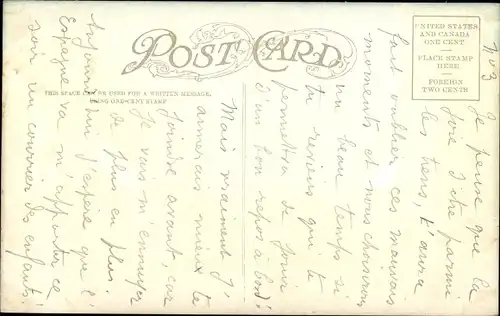 POST CARD
THIS SPACE CAN BE USED FOR A WRITTEN MESSAGE,
USING ONE-CENT STAMP
UNITED STATES
AND CANADA
ONE CENT
PLACE STAMP
HERE
FOREIGN
TWO CENTS
Je pense que la
joie d'être parmi
les tiens, t'aura
fait oublier ces mauvais
moments et nous choisirons
un beau temps si
tu reviens qui te
permettra de jouir
d'un bon repos à bord!
Mais vraiment j'
aimerais mieux te
joindre avant, car
je vais m'ennuyer
de plus en plus.
Aujourd'hui j'espère que l'
Espagne va m'apporter ce
soir un courrier des enfants!